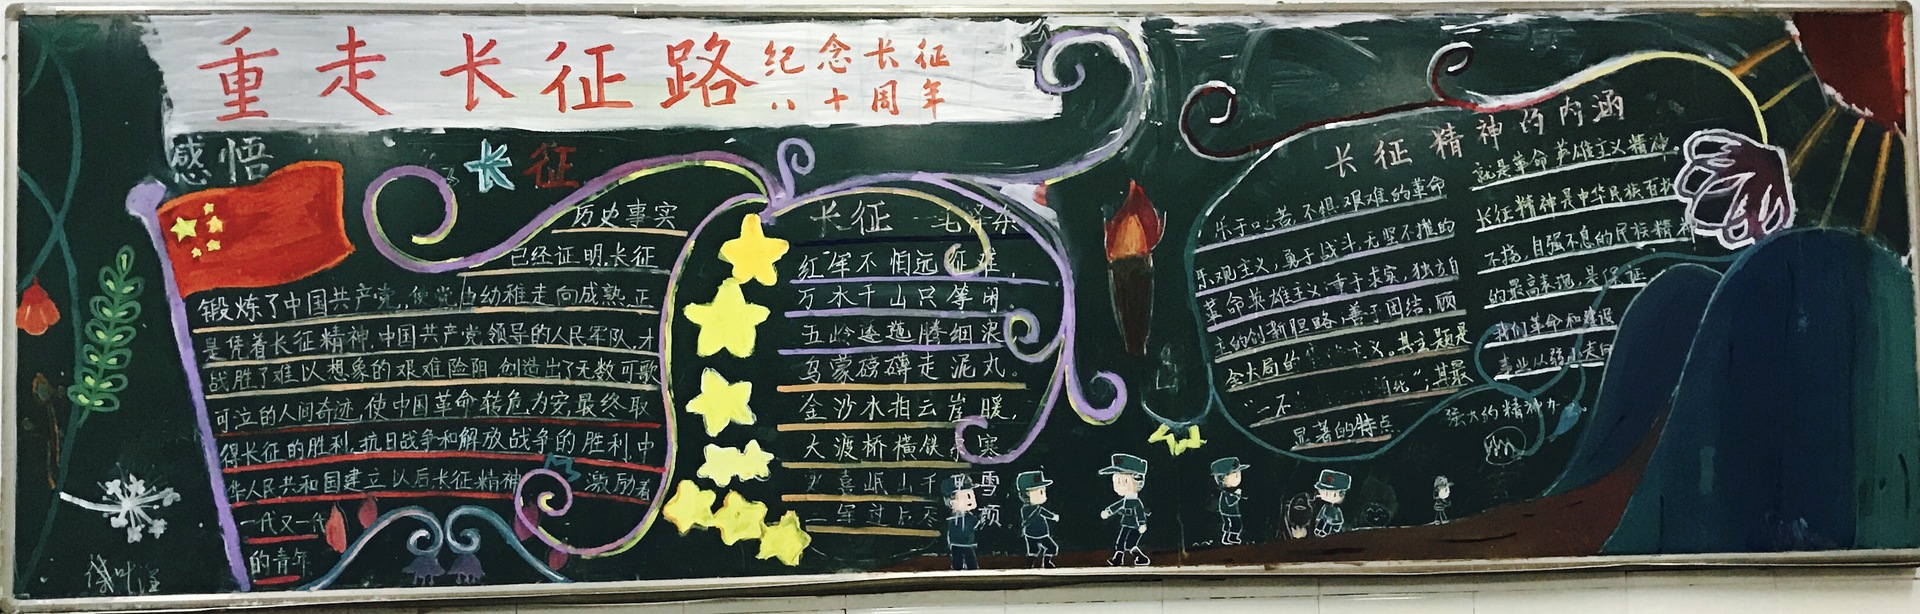 重走长征路
纪念长征
八十周年
感悟
长征
历史事实
已经证明,长征
锻炼了中国共产党,使党由幼稚走向成熟,正
是凭着长征精神,中国共产党领导的人民军队,才
战胜了难以想象的艰难险阻,创造出了无数可歌
可泣的人间奇迹,使中国革命转危为安,最终取
得长征的胜利,抗日战争和解放战争的胜利,中
华人民共和国建立以后长征精神 激励着
一代又一代
的青年
长征 毛泽东
红军不怕远征难,
万水千山只等闲。
五岭逶迤腾细浪
乌蒙磅礴走泥丸。
金沙水拍云崖暖,
大渡桥横铁索寒
更喜岷山千里雪,
三军过后尽 颜。
长征精神的内涵
乐于吃苦,不惧艰难的革命
乐观主义,勇于战斗,无坚不摧的
革命英雄主义,重于求实,独立自
主的创新胆路,善于团结,顾
全大局的 主义。其主题是
"一不 ";其最
显著的特点
就是革命英雄主义精神。
长征精神是中华民族百折
不挠,自强不息的民族精神
的最高表现,是保证
我们革命和建设
事业从弱小走向
强大的精神力